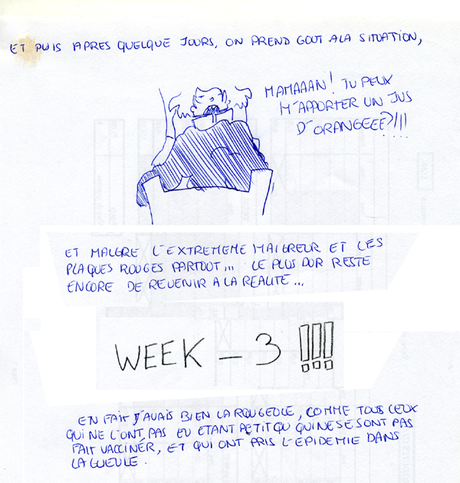 ET PUIS APRES QUELQUE JOURS, ON PREND GOUT A LA SITUATION,
MAMAAAN! TU PEUX
M'APPORTER UN JUS
D'ORANGEEE?!!!
ET MALGRE L'EXTREMEME MAIGREUR ET LES
PLAQUES ROUGES PARTOUT... LE PLUS DUR RESTE
ENCORE DE REVENIR A LA REALITE...
WEEK - 3 !!!
EN FAIT J'AVAIS BIEN LA ROUGEOLE, COMME TOUS CEUX
QUI NE L'ONT PAS EU ETANT PETIT OU QUI NE SE SONT PAS
FAIT VACCINER, ET QUI ONT PRIS L'EPIDEMIE DANS
LA GUEULE.